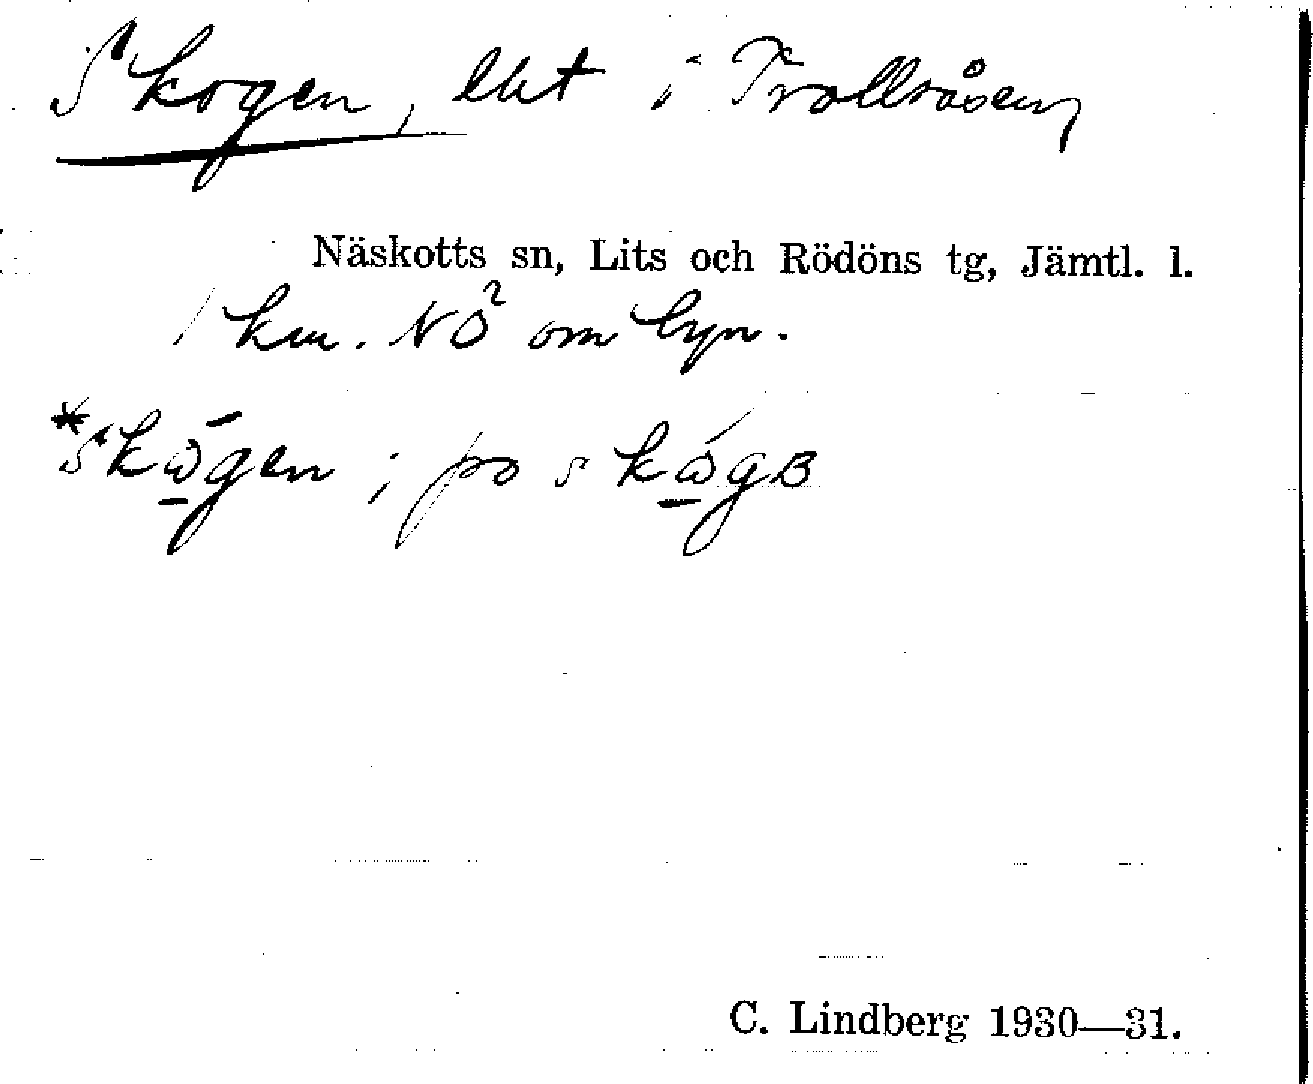 Skogen, lht i Trollråsen,
Näskotts sn, Lits och Rödöns tg, Jämtl. l.
1 km. NÖ om byn.
*skώ̱gen ; po skώ̱gʙ
C. Lindberg 1930—31.